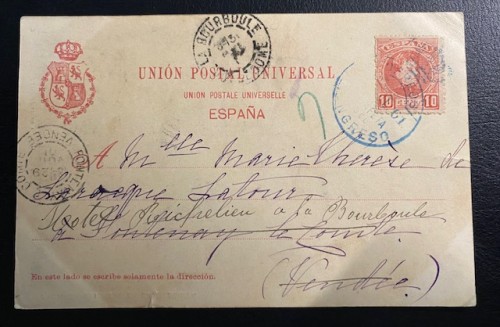 LA BOURBOULE
DOME
UNIÓN POSTAL UNIVERSAL
UNION POSTALE UNIVERSELLE
ESPAÑA
ESPAÑA
10 10
CONGRESO
A Mlle Marie Therese de
Larocque Latour
Hotel Richelieu a la Bourboule
a Fontenay le Comte
(Vendée)
En este lado se escribe solamente la dirección.